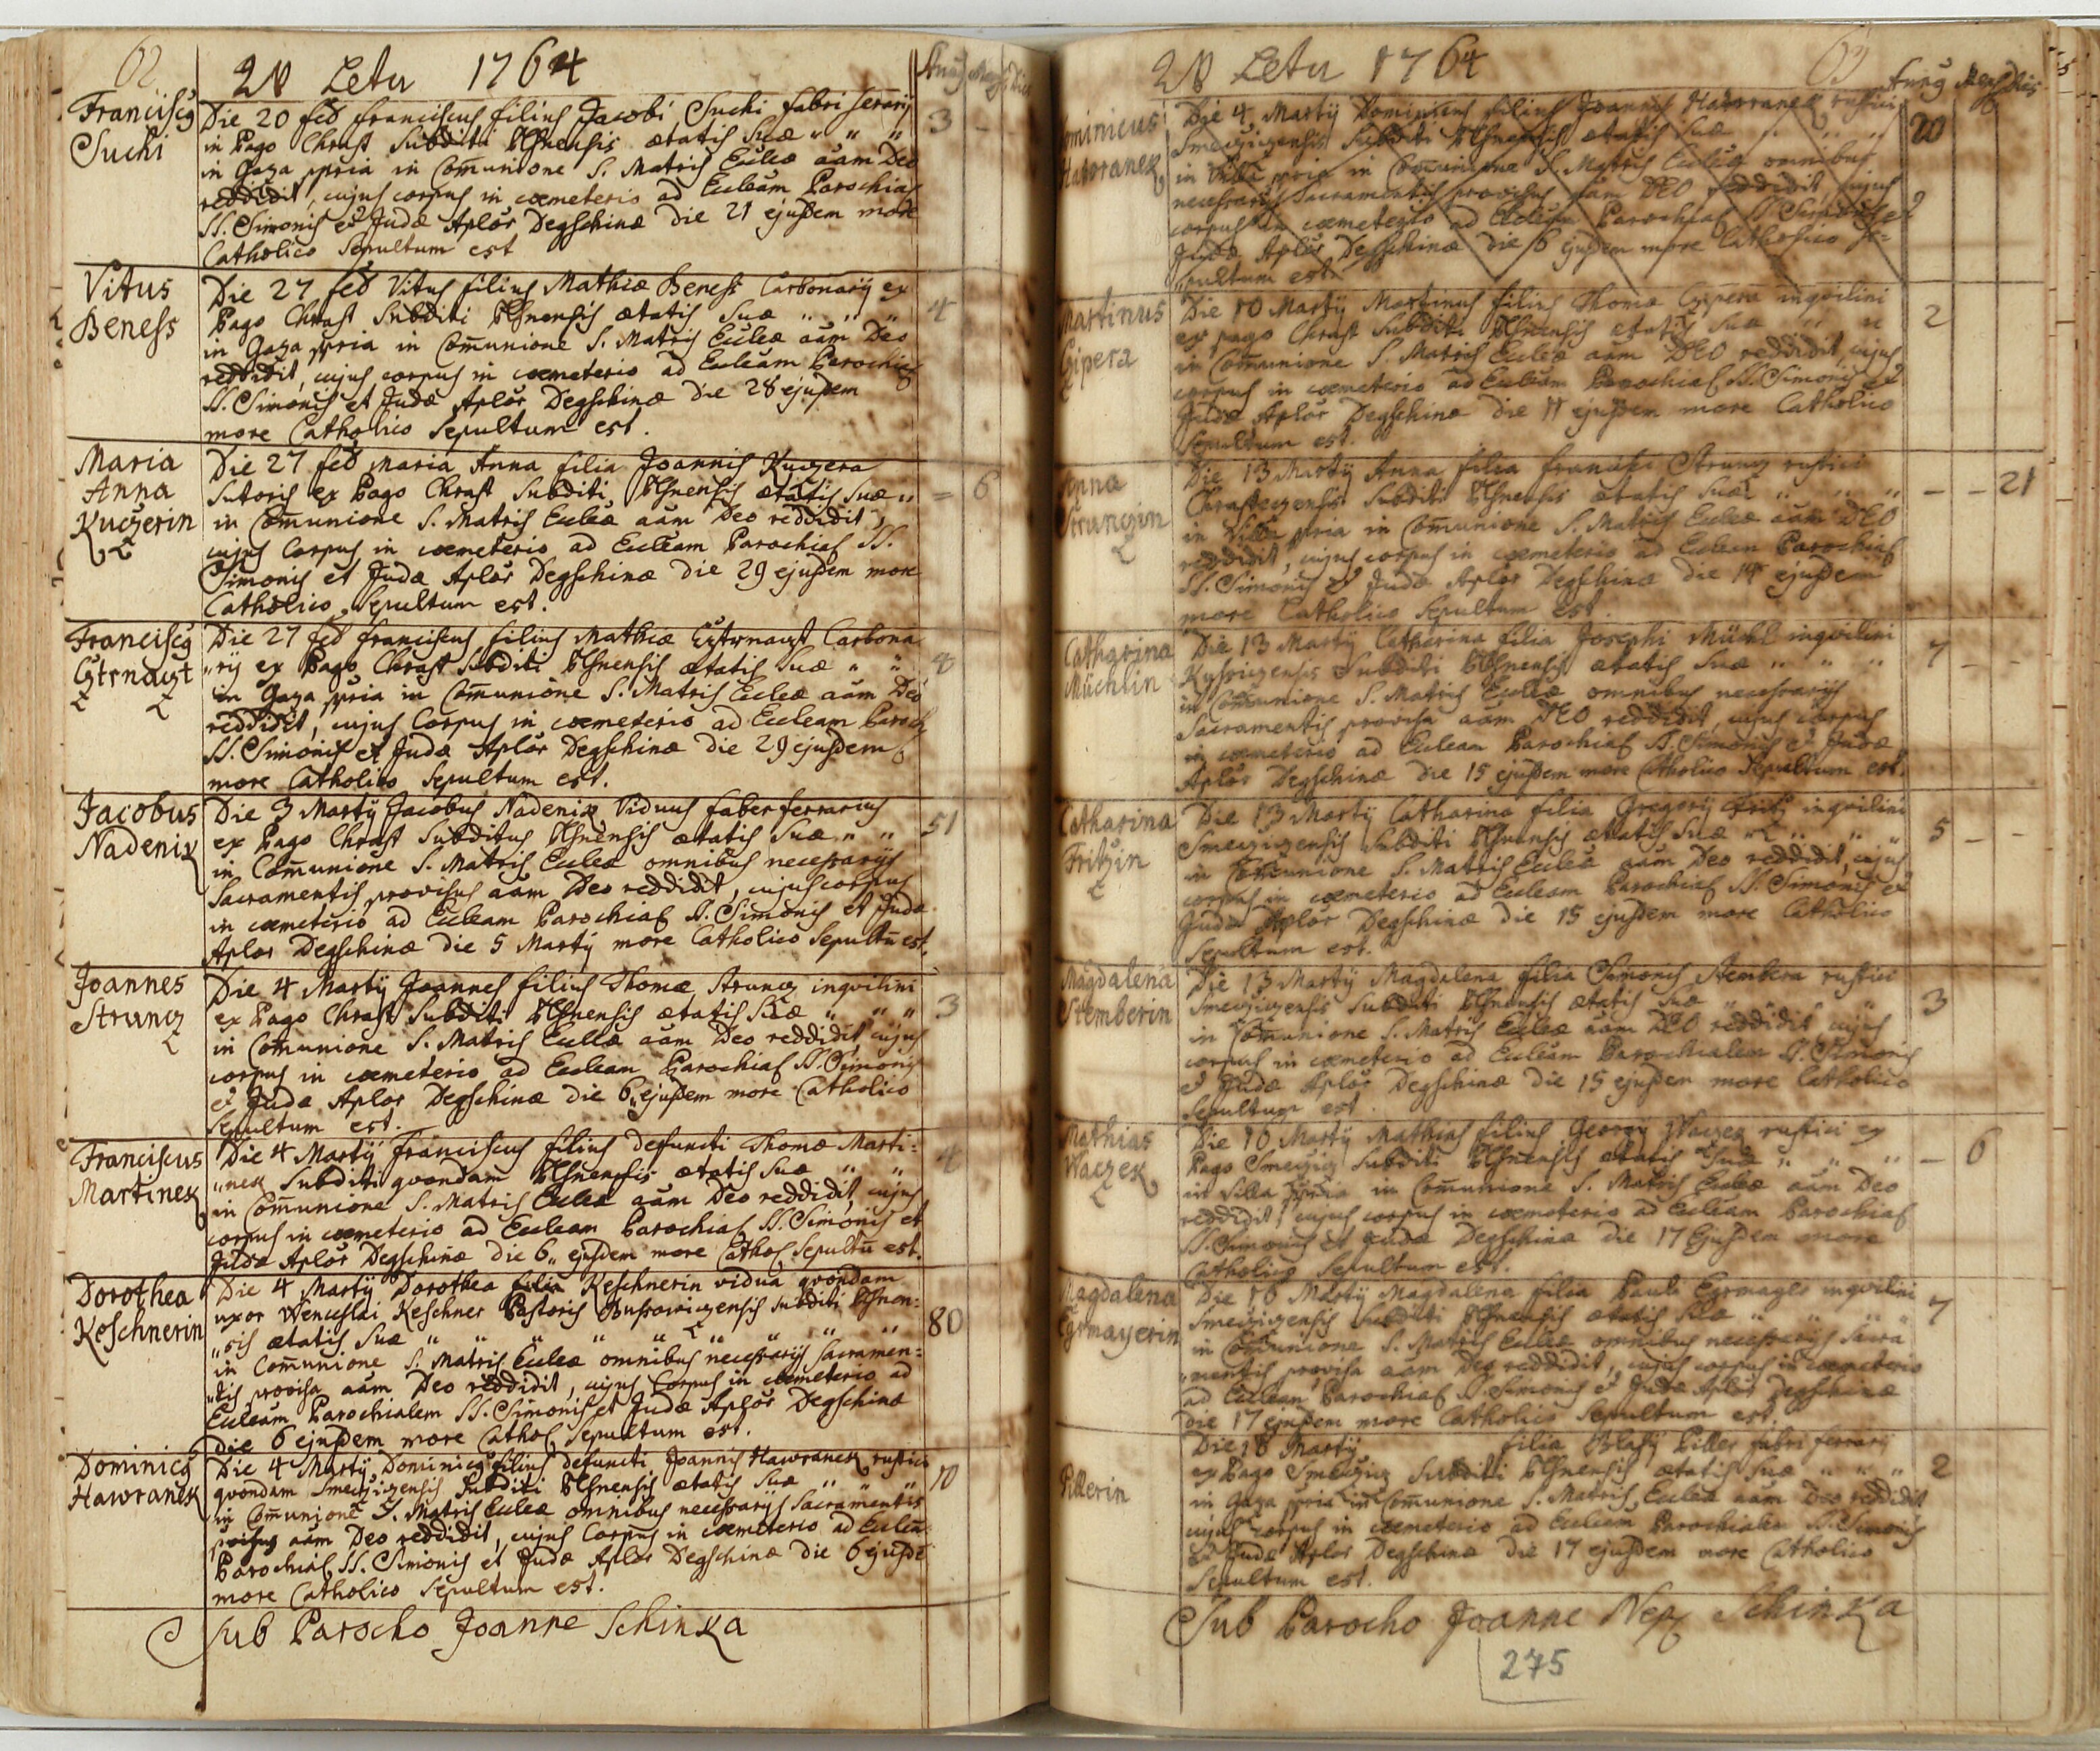 62
AN Letu 1764
Annus Mens Dies
Franciscg
Suchi
Die 20 feb franciscus filius Jacobi Suchi fabri ferrarij
in Pago Chrast Subditi ætatis suæ " " " 3 -
in Gaza ppria in Comunione S. Matris Eccleæ aam Deo
reddidit, cujus corpus in cœmeterio ad Eccleam Parochial
SS. Simonis et Judæ Aplor Degschinæ die 21 ejusdem more
Catholico Sepultum est
Vitus
Beness
Die 27 feb Vitus filius Mathiæ Beness Carbonarij ex
Pago Chrast Subditi ætatis Suæ " " " 4
in Gaza ppria in Comunione S. Matris Eccleæ aam Deo
reddidit, cujus corpus in cœmeterio ad Eccleam Parochial
SS. Simonis et Judæ Aplor Degschinæ die 28 ejusdem
more Catholico Sepultum est.
Maria
Anna
Kuczerin
Die 27 feb Maria Anna filia Joannis Kuczera
Sutoris ex Pago Chrast Subditi ætatis Suæ " = 6
in Comunione S. Matris Eccleæ aam Deo reddidit,
cujus Corpus in cœmeterio ad Eccleam Parochial SS.
Simonis et Judæ Aplor Degschinæ die 29 ejusdem more
Catholico Sepultum est.
Franciscg
Die 27 feb franciscus filius Mathiæ Carbona
"rij ex Pago Chrast Subditi ætatis Suæ " " 4
in Gaza ppria in Comunione S. Matris Eccleæ aam Deo
reddidit, cujus Corpus in cœmeterio ad Eccleam Paroch
SS. Simonis et Judæ Aplor Degschinæ die 29 ejusdem
more Catholico Sepultum est.
Jacobus
Nadenik
Die 3 Martij Jacobus Nadenik Viduus faber ferrarius
ex Pago Chrast Subditus ætatis Suæ " " 51
in Comunione S. Matris Eccleæ omnibus necessarijs
Sacramentis provisus aam Deo reddidit, cujus corpus
in cœmeterio ad Eccleam Parochial SS. Simonis et Judæ
Aplor Degschinæ die 5 Martij more Catholico Sepultu est.
Joannes
Strunz
Die 4 Martij Joannes filius Thomæ Strunz inqvilini
ex Pago Chrast Subditi ætatis Suæ " " " 3
in Comunione S. Matris Eccleæ aam Deo reddidit, cujus
corpus in cœmeterio ad Eccleam Parochial SS. Simonis
et Judæ Aplor Degschinæ die 6 ejusdem more Catholico
Sepultum est.
Franciscus
Martinek
Die 4 Martij franciscus filius defuncti Thomæ Marti:
"nek Subditi qvondam ætatis Suæ " " 4
in Comunione S. Matris Eccleæ aam Deo reddidit, cujus
corpus in cœmeterio ad Eccleam Parochial SS. Simonis et
Judæ Aplor Degschinæ die 6 " ejusdem more Cathol Sepultu est.
Dorothea
Keschnerin
Die 4 Martij Dorothea filia Keschnerin vidua qvondam
uxor Wenceslai Keschner Pastoris subditi
"sis ætatis Suæ " " " " " " 80
in Comunione S. Matris Eccleæ omnibus necessarijs Sacramen:
"tis provisa aam Deo reddidit, cujus Corpus in cœmeterio ad
Eccleam Parochialem SS. Simonis et Judæ Aplor Degschinæ
die 6 ejusdem more Cathol Sepultum est.
Dominicg
Hawranek
Die 4 Martij Dominicg filius defuncti Joannis Hawranek rustici
qvondam Smedzicensis Subditi ætatis Suæ " " 10
in Comunione S. Matris Eccleæ omnibus necessarijs Sacramentis
provisus aam Deo reddidit, cujus Corpus in cœmeterio ad Eccleam
Parochial SS. Simonis et Judæ Aplor Degschinæ die 6 ejusde
more Catholico Sepultum est.
Sub Parocho Joanne Schinka
63
AN Letu 1764
Annus Mens Dies
Dominicus
Hawranek
Die 4 Martij Dominicus filius Joannis Hawranek rustici
Subditi ætatis Suæ " " " 20
in Villa ppria in Comunione S. Matris Eccleæ omnibus
necessarijs Sacramentis provisus aam DEO reddidit, cujus
corpus in cœmeterio ad Eccleam Parochial SS. Simonis et
Judæ Aplor Degschinæ die 6 ejusdem more Catholico Se=
pultum est.
Martinus
Czipera
Die 10 Martij Martinus filius Thomæ Czipera inqvilini
ex pago Chrast Subditi ætatis Suæ " " 2
in Comunione S. Matris Eccleæ aam DEO reddidit, cujus
corpus in cœmeterio ad Eccleam Parochial SS. Simonis et
Judæ Aplor Degschinæ die 11 ejusdem more Catholico
Sepultum est.
Anna
Strunzin
Die 13 Martij Anna filia francisci Strunz rustici
Subditi ætatis Suæ " " " - - 21
in Villa ppria in Comunione S. Matris Eccleæ aam DEO
reddidit, cujus corpus in cœmeterio ad Eccleam Parochial
SS. Simonis et Judæ Aplor Degschinæ die 14 ejusdem
more Catholico Sepultum est.
Catharina
Müchlin
Die 13 Martij Catharina filia Josephi Müchl inqvilini
Subditi ætatis Suæ " " " 7 - -
in Comunione S. Matris Eccleæ omnibus necessarijs
Sacramentis provisa aam DEO reddidit, cujus corpus
in cœmeterio ad Eccleam Parochial SS. Simonis et Judæ
Aplor Degschinæ die 15 ejusdem more Catholico Sepultum est.
Catharina
Fritzin
Die 13 Martij Catharina filia Gregorij Fritz inqvilini
Subditi ætatis Suæ " " " 5 - -
in Comunione S. Matris Eccleæ aam Deo reddidit, cujus
corpus in cœmeterio ad Eccleam Parochial SS. Simonis et
Judæ Aplor Degschinæ die 15 ejusdem more Catholico
Sepultum est.
Magdalena
Stemberin
Die 13 Martij Magdalena filia Simonis Stembera rustici
Subditi ætatis Suæ " " " 3
in Comunione S. Matris Eccleæ aam DEO reddidit, cujus
corpus in cœmeterio ad Eccleam Parochialem SS. Simonis
et Judæ Aplor Degschinæ die 15 ejusdem more Catholico
Sepultum est.
Mathias
Waczek
Die 16 Martij Mathias filius Georgij Waczek rustici ex
Pago Subditi ætatis Suæ " " " - 6
in Villa ppria in Comunione S. Matris Eccleæ aam Deo
reddidit, cujus corpus in cœmeterio ad Eccleam Parochial
SS. Simonis et Judæ Degschinæ die 17 Ejusdem more
Catholico Sepultum est.
Magdalena
Die 16 Martij Magdalena filia Pauli inqvilini
Subditi ætatis Suæ " " " 7
in Comunione S. Matris Eccleæ omnibus necessarijs Sacra
"mentis provisa aam Deo reddidit, cujus corpus in cœmeterio
ad Eccleam Parochial SS. Simonis et Judæ Aplor Degschinæ
die 17 ejusdem more Catholico Sepultum est.
Pillerin
Die 16 Martij filia Blasij Piller fabri ferrarij
ex Pago Subditi ætatis Suæ " " " 2
in Gaza ppria in Comunione S. Matris Eccleæ aam Deo reddidit
cujus corpus in cœmeterio ad Eccleam Parochialem SS. Simonis
et Judæ Aplor Degschinæ die 17 ejusdem more Catholico
Sepultum est.
Sub Parocho Joanne Nep Schinka
275